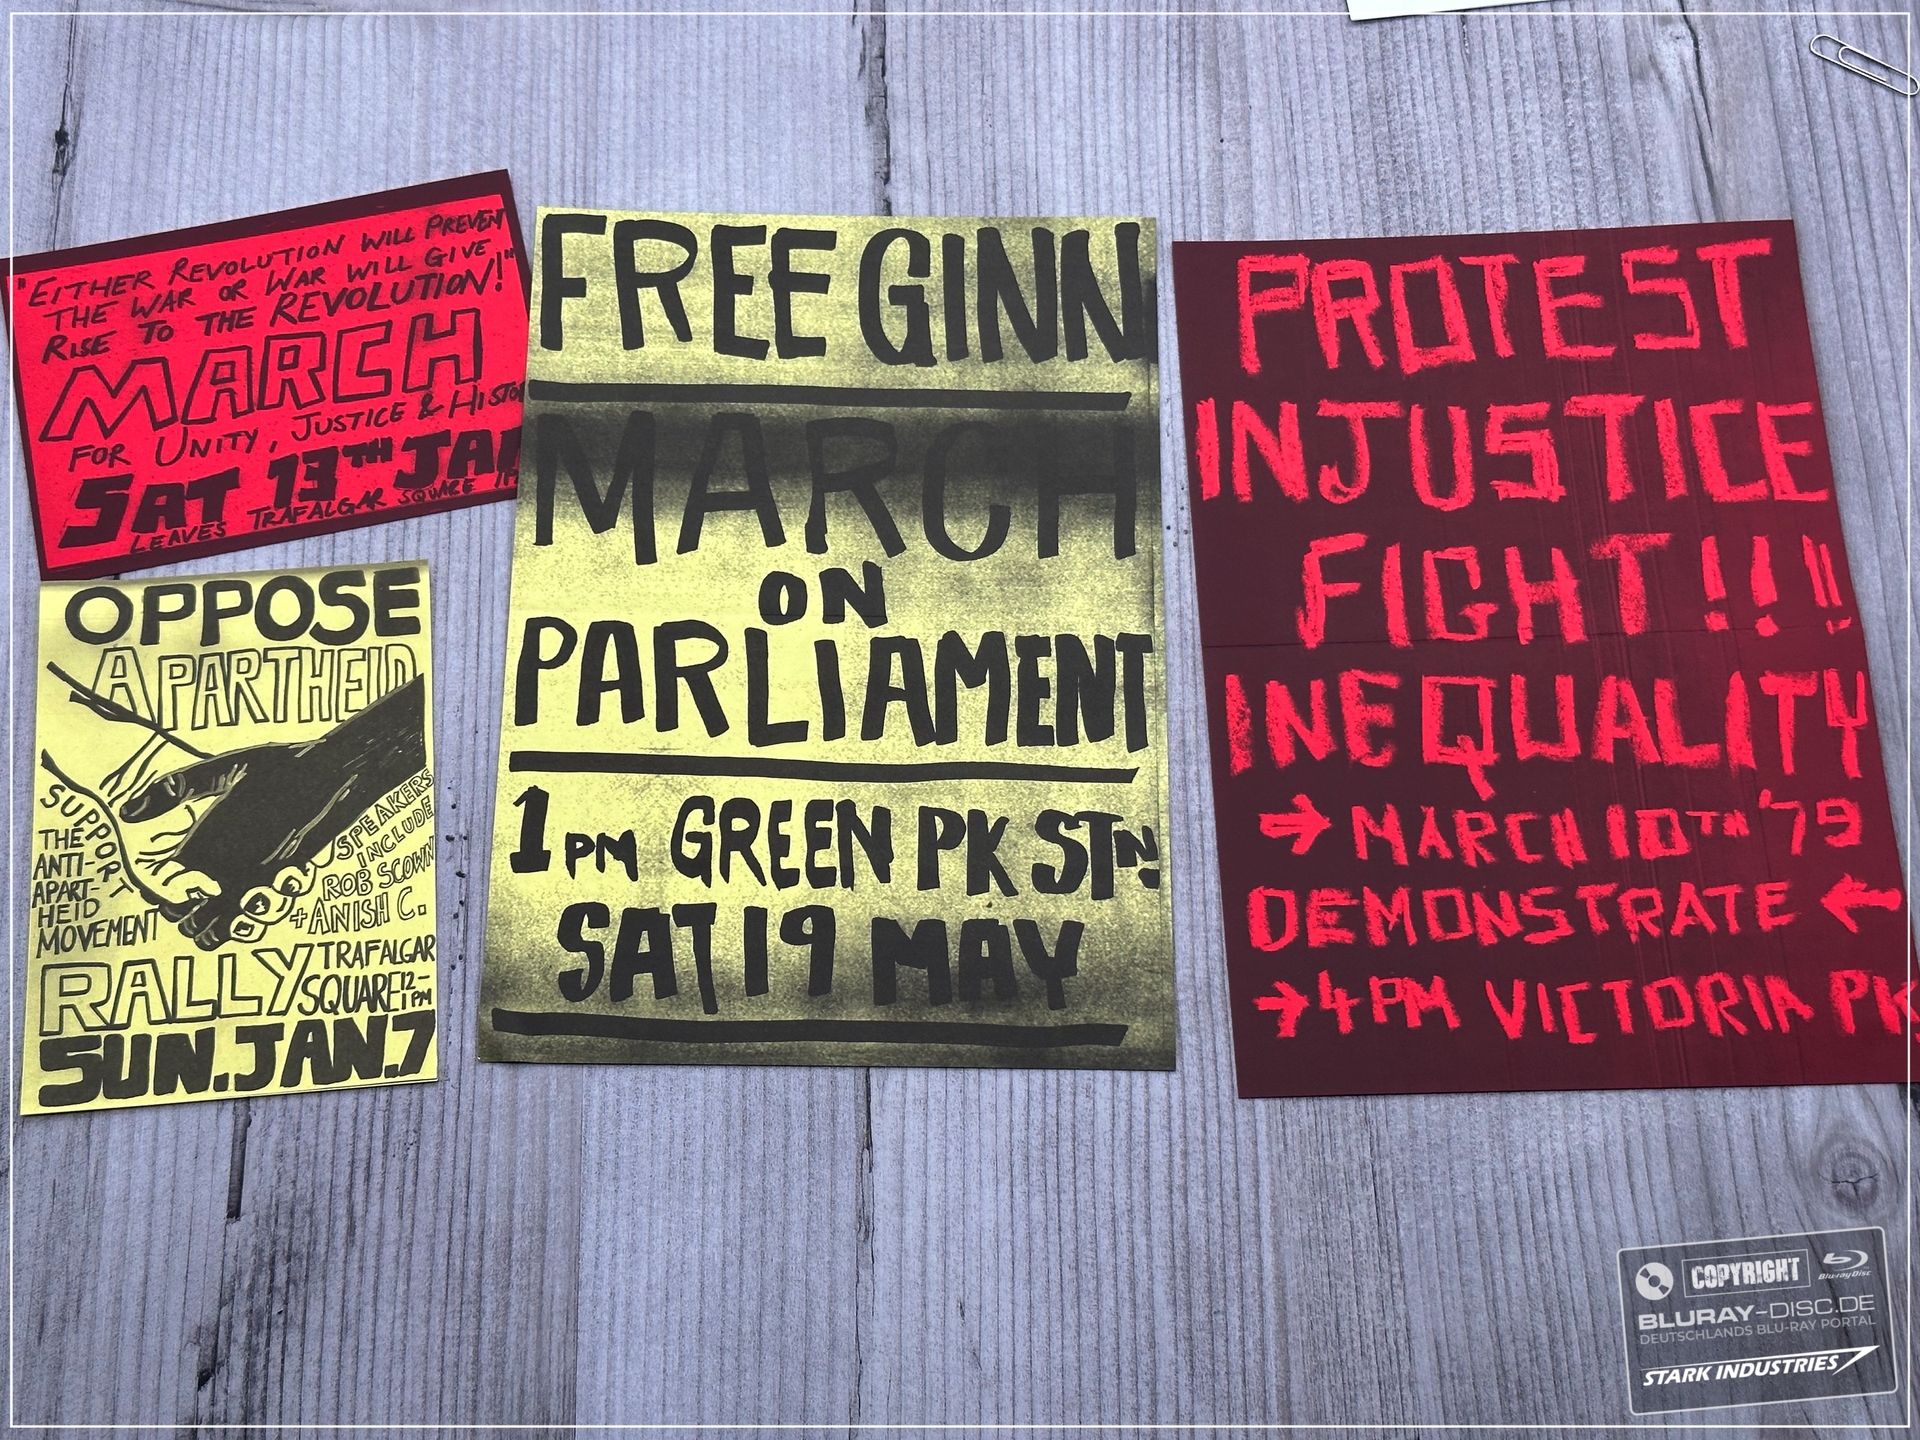 "EITHER REVOLUTION WILL PREVENT
THE WAR OR WAR WILL GIVE
RISE TO THE REVOLUTION!"
MARCH
FOR UNITY, JUSTICE &
SAT 13TH
LEAVES TRAFALGAR SQUARE
OPPOSE
APARTHEID
SUPPORT
THE
ANTI-
APART-
HEID
MOVEMENT
SPEAKERS
INCLUDE
ROB SCOWN
+ANISH C.
RALLY
TRAFALGAR
SQUARE 12-
1PM
SUN.JAN.7
FREE GINN
MARCH
ON
PARLIAMENT
1PM GREEN PK STN!
SAT 19 MAY
PROTEST
INJUSTICE
FIGHT!!!!
INEQUALITY
→ MARCH 10TH '79
DEMONSTRATE ←
→4PM VICTORIA PK
COPYRIGHT
Blu-ray Disc
BLURAY-DISC.DE
DEUTSCHLANDS BLU-RAY PORTAL
STARK INDUSTRIES